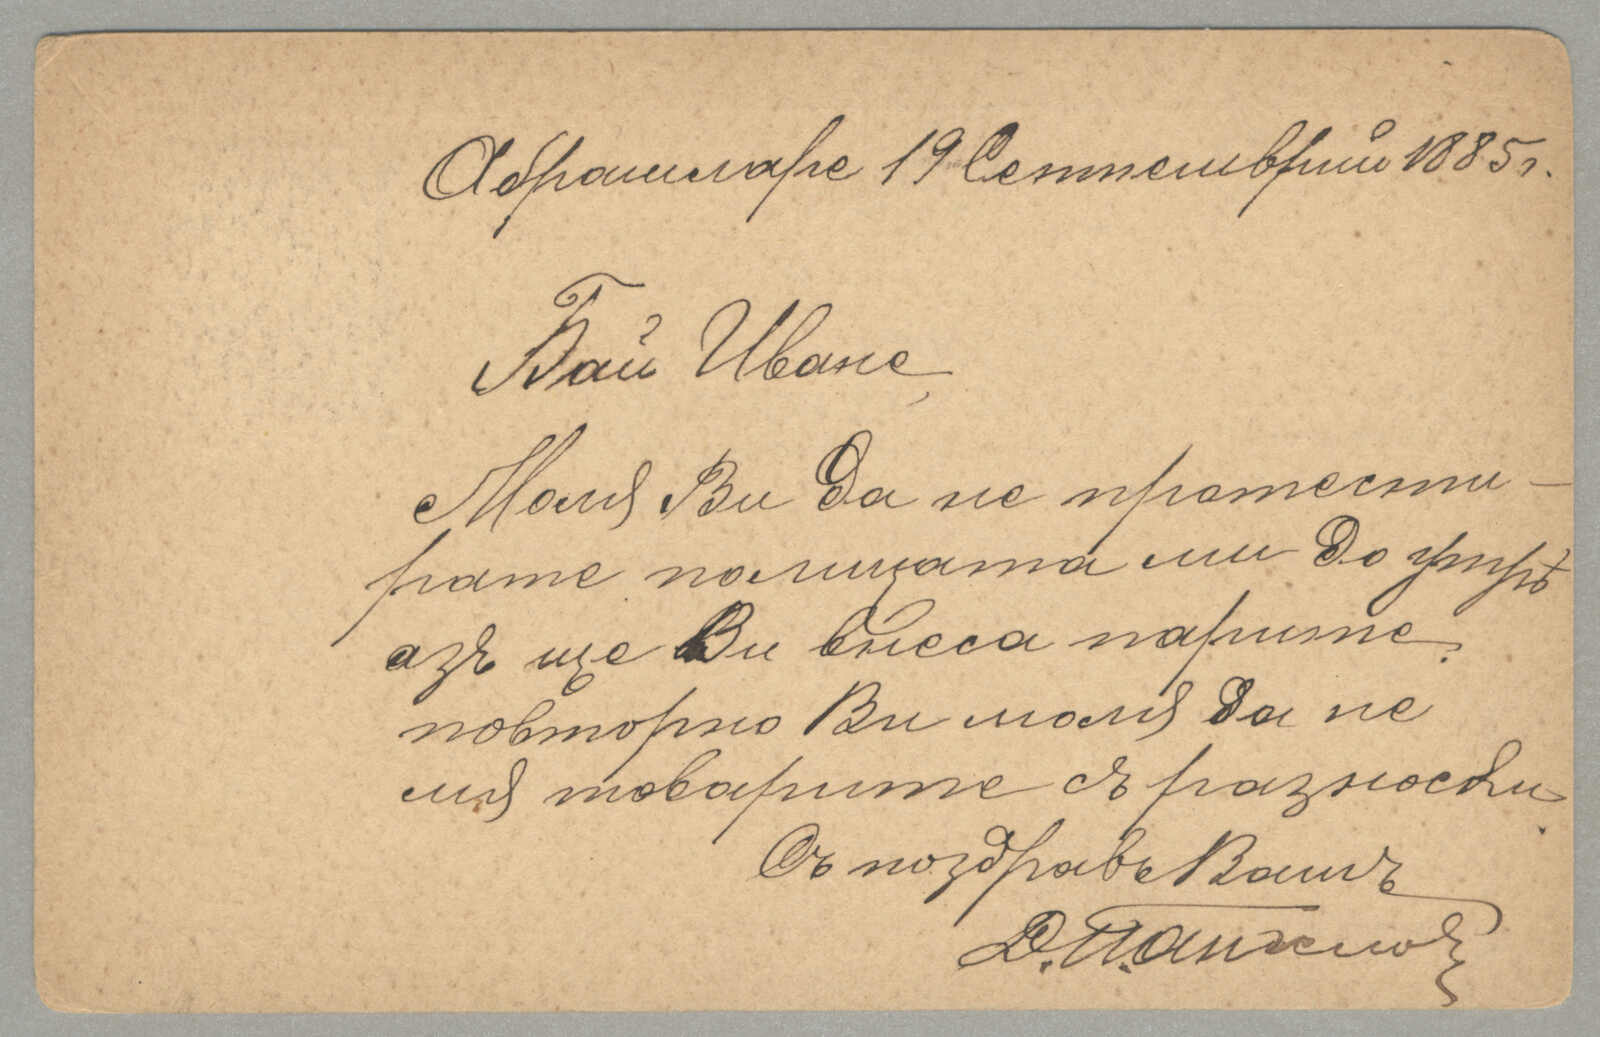 Абрашларе 19 Септемврий 1885 г.
Бай Иване,
Моля Ви да не протести-
рате полицата ми до утрѣ
азъ ще Ви внесса парите.
повторно Ви моля да не
мя товарите съ разноски.
Съ поздравъ Вашъ
Д. П. Ангеловъ